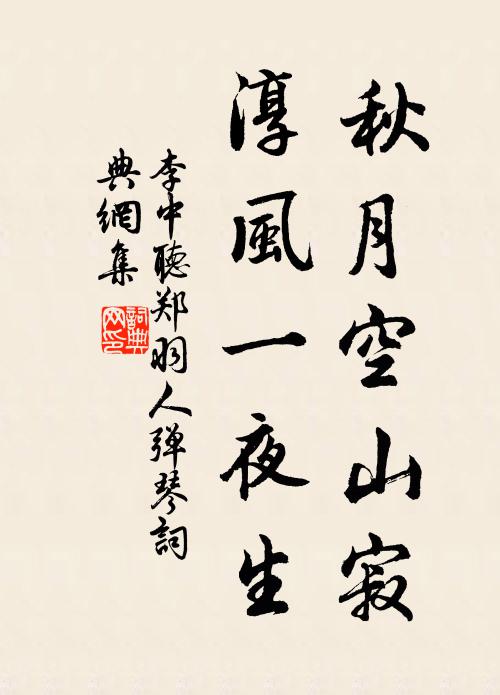 秋月空山寂
淳風一夜生
李中聽郑羽人弹琴詞
典網集
詞典网印